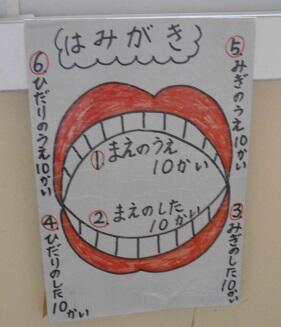 はみがき
①まえのうえ
10かい
②.まえのした
10かい
③.みぎのした10かい
④.ひだりのした10かい
⑤.みぎのうえ10かい
⑥.ひだりのうえ10かい